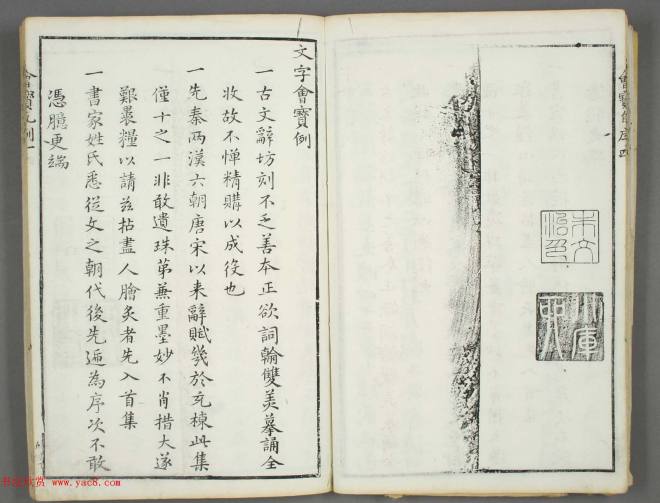 朱文治印
文字會寶例
一古文辭坊刻不乏善本正欲詞翰雙美摹誦全
收故不憚精購以成役也
一先秦兩漢六朝唐宋以來辭賦幾於充棟此集
僅十之一非敢遺珠第兼重墨妙不肖措大遂
艱暴糧以請茲拈盡人膾炙者先入首集
一書家姓氏悉從文之朝代後先遞為序次不敢
憑臆更端
書法欣賞 www.yac8.com